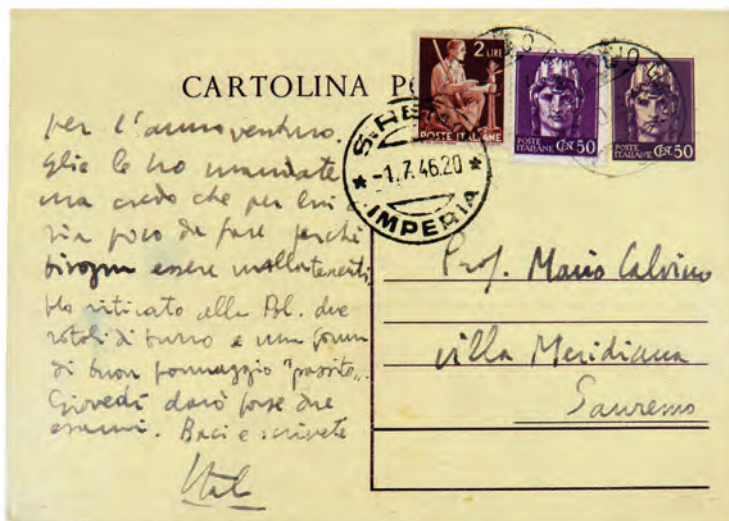 CARTOLINA PO
2 LIRE
POSTE ITALIANE
POSTE
ITALIANE CEN 50
POSTE
ITALIANE CEN 50
-1.7.46.20
IMPERIA
per l'anno venturo.
Glie le ho mandate
ma credo che per lui
sia poco da fare perché
bisogna essere
Ho ritirato alla Pol. due
rotoli di burro e una forma
di buon formaggio "passito".
Giovedì darò forse due
esami. Baci e scrivete
Ital
Prof. Mario Calvino
villa Meridiana
Sanremo